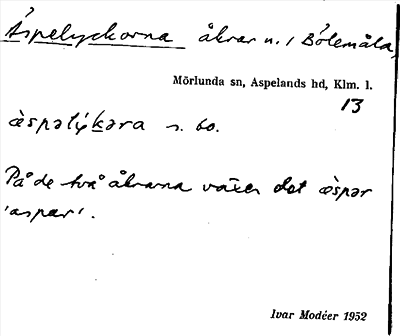 Áspelyckorna åkrar n. i Bölemåla,
Mörlunda sn, Aspelands hd, Klm. l.
13
æ̀spəlýkəra s. bo.
På de två åkrarna växer det æ̀spər
'aspar'.
Ivar Modéer 1952